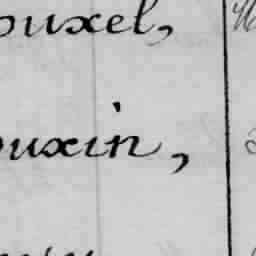 ouxel,
ouxin,